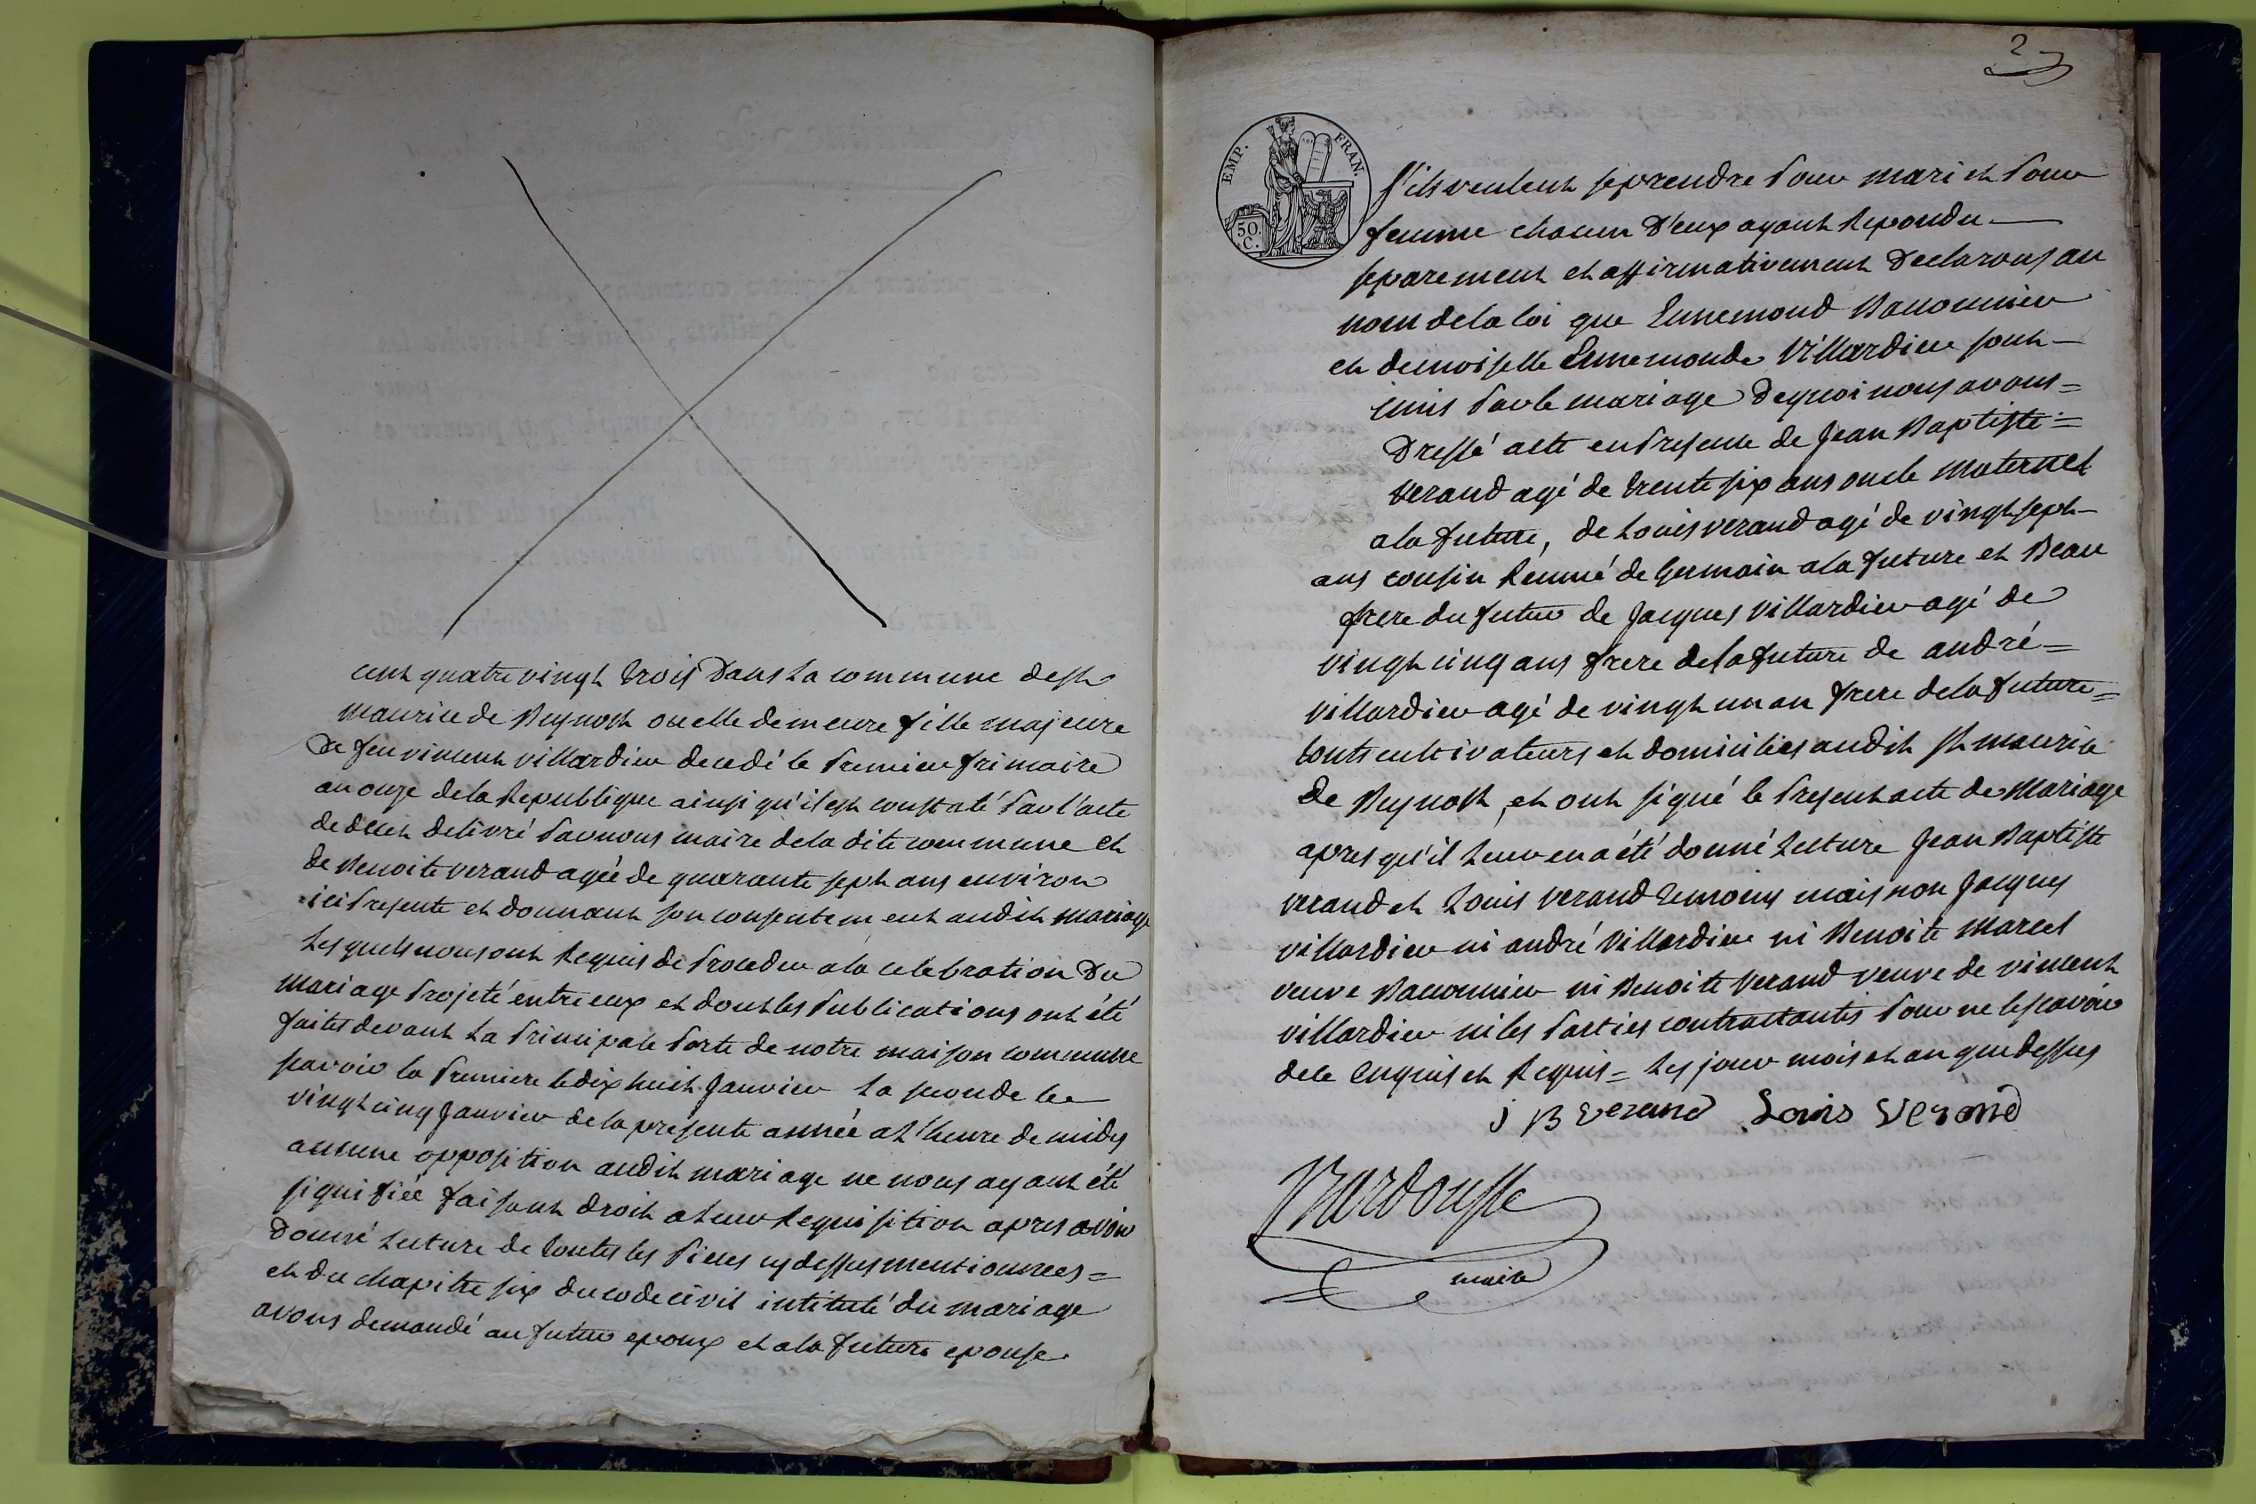 cent quatre vingt trois Dans la commune de st
maurice de Beynost ou elle demeure fille majeure
De feu vincent villardieu decedé le premier frimaire
an onze de la Republique ainsi qu'il est constaté par l'acte
de décét delivré par nous maire de la dite commune et
de Benoite verand agée de quarante sept ans environ
ici presente et donnant son consentement audit mariage
Lesquels nous ont Requis de proceder a la celebration Du
mariage projeté entre eux et dont les publications ont été
faites devant La principale porte de notre maison commune
scavoir la premiere le dix huit Janvier La seconde le
vingt cinq Janvier de la presente année a L'heure de midy
aucune opposition audit mariage ne nous ayant été
signifiée faisant droit a leur Requisition apres avoir
Donné Lecture de toutes les pieces cy dessus mentionnées =
et du chapitre six du code civil intitulé du mariage
avons demandé au futur epoux et a la future epouse
2
EMP. FRAN.
50. C.
s'ils veulent se prendre pour mari et pour
femme chacun D'eux ayant Repondu
separement et affirmativement Declarons au
nom de la loi que Ennemond
et demoiselle Ennemonde Villardieu sont
unis par le mariage De quoi nous avons =
Dressé acte en presence de Jean Baptiste =
verand agé de trente six ans oncle maternel
a la future, de Louis verand agé de vingt sept
ans cousin Remué de Germain a la future et Beau
frere du futur de Jacques villardieu agé de
vingt cinq ans frere de la future de andré =
villardieu agé de vingt un an frere de la future =
touts cultivateurs et domiciliés audit st maurice
de Beynost, et ont signé le present acte de mariage
apres qu'il Leur en a été donné Lecture Jean Baptiste
verand et Louis verand temoins mais non Jacques
villardieu ni andré Villardieu ni Benoite marcel
veuve ni Benoite verand veuve de vincent
villardieu ni les parties contractantes pour ne le scavoir
de ce Enquis et Requis = Les jour mois et an que dessus
j B verand Louis verand
maire